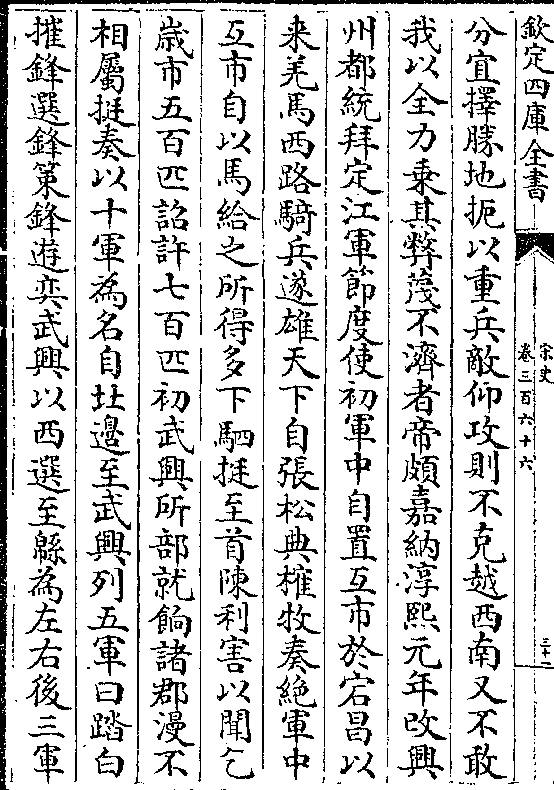 欽定四庫全書
宋史
卷三百六十六
三十一
分宜擇勝地扼以重兵敵仰攻則不克越西南又不敢
我以全力乘其弊蔑不濟者帝頗嘉納淳熙元年改興
州都統拜定江軍節度使初軍中自置互市於宕昌以
来羌馬西路騎兵遂雄天下自張松典榷牧奏絶軍中
互市自以馬給之所得多下駟挺至首陳利害以聞乞
歳市五百匹詔許七百匹初武興所部就餉諸郡漫不
相屬挺奏以十軍為名自北邉至武興列五軍曰踏白
摧鋒選鋒策鋒遊奕武興以西選至緜為左右後三軍